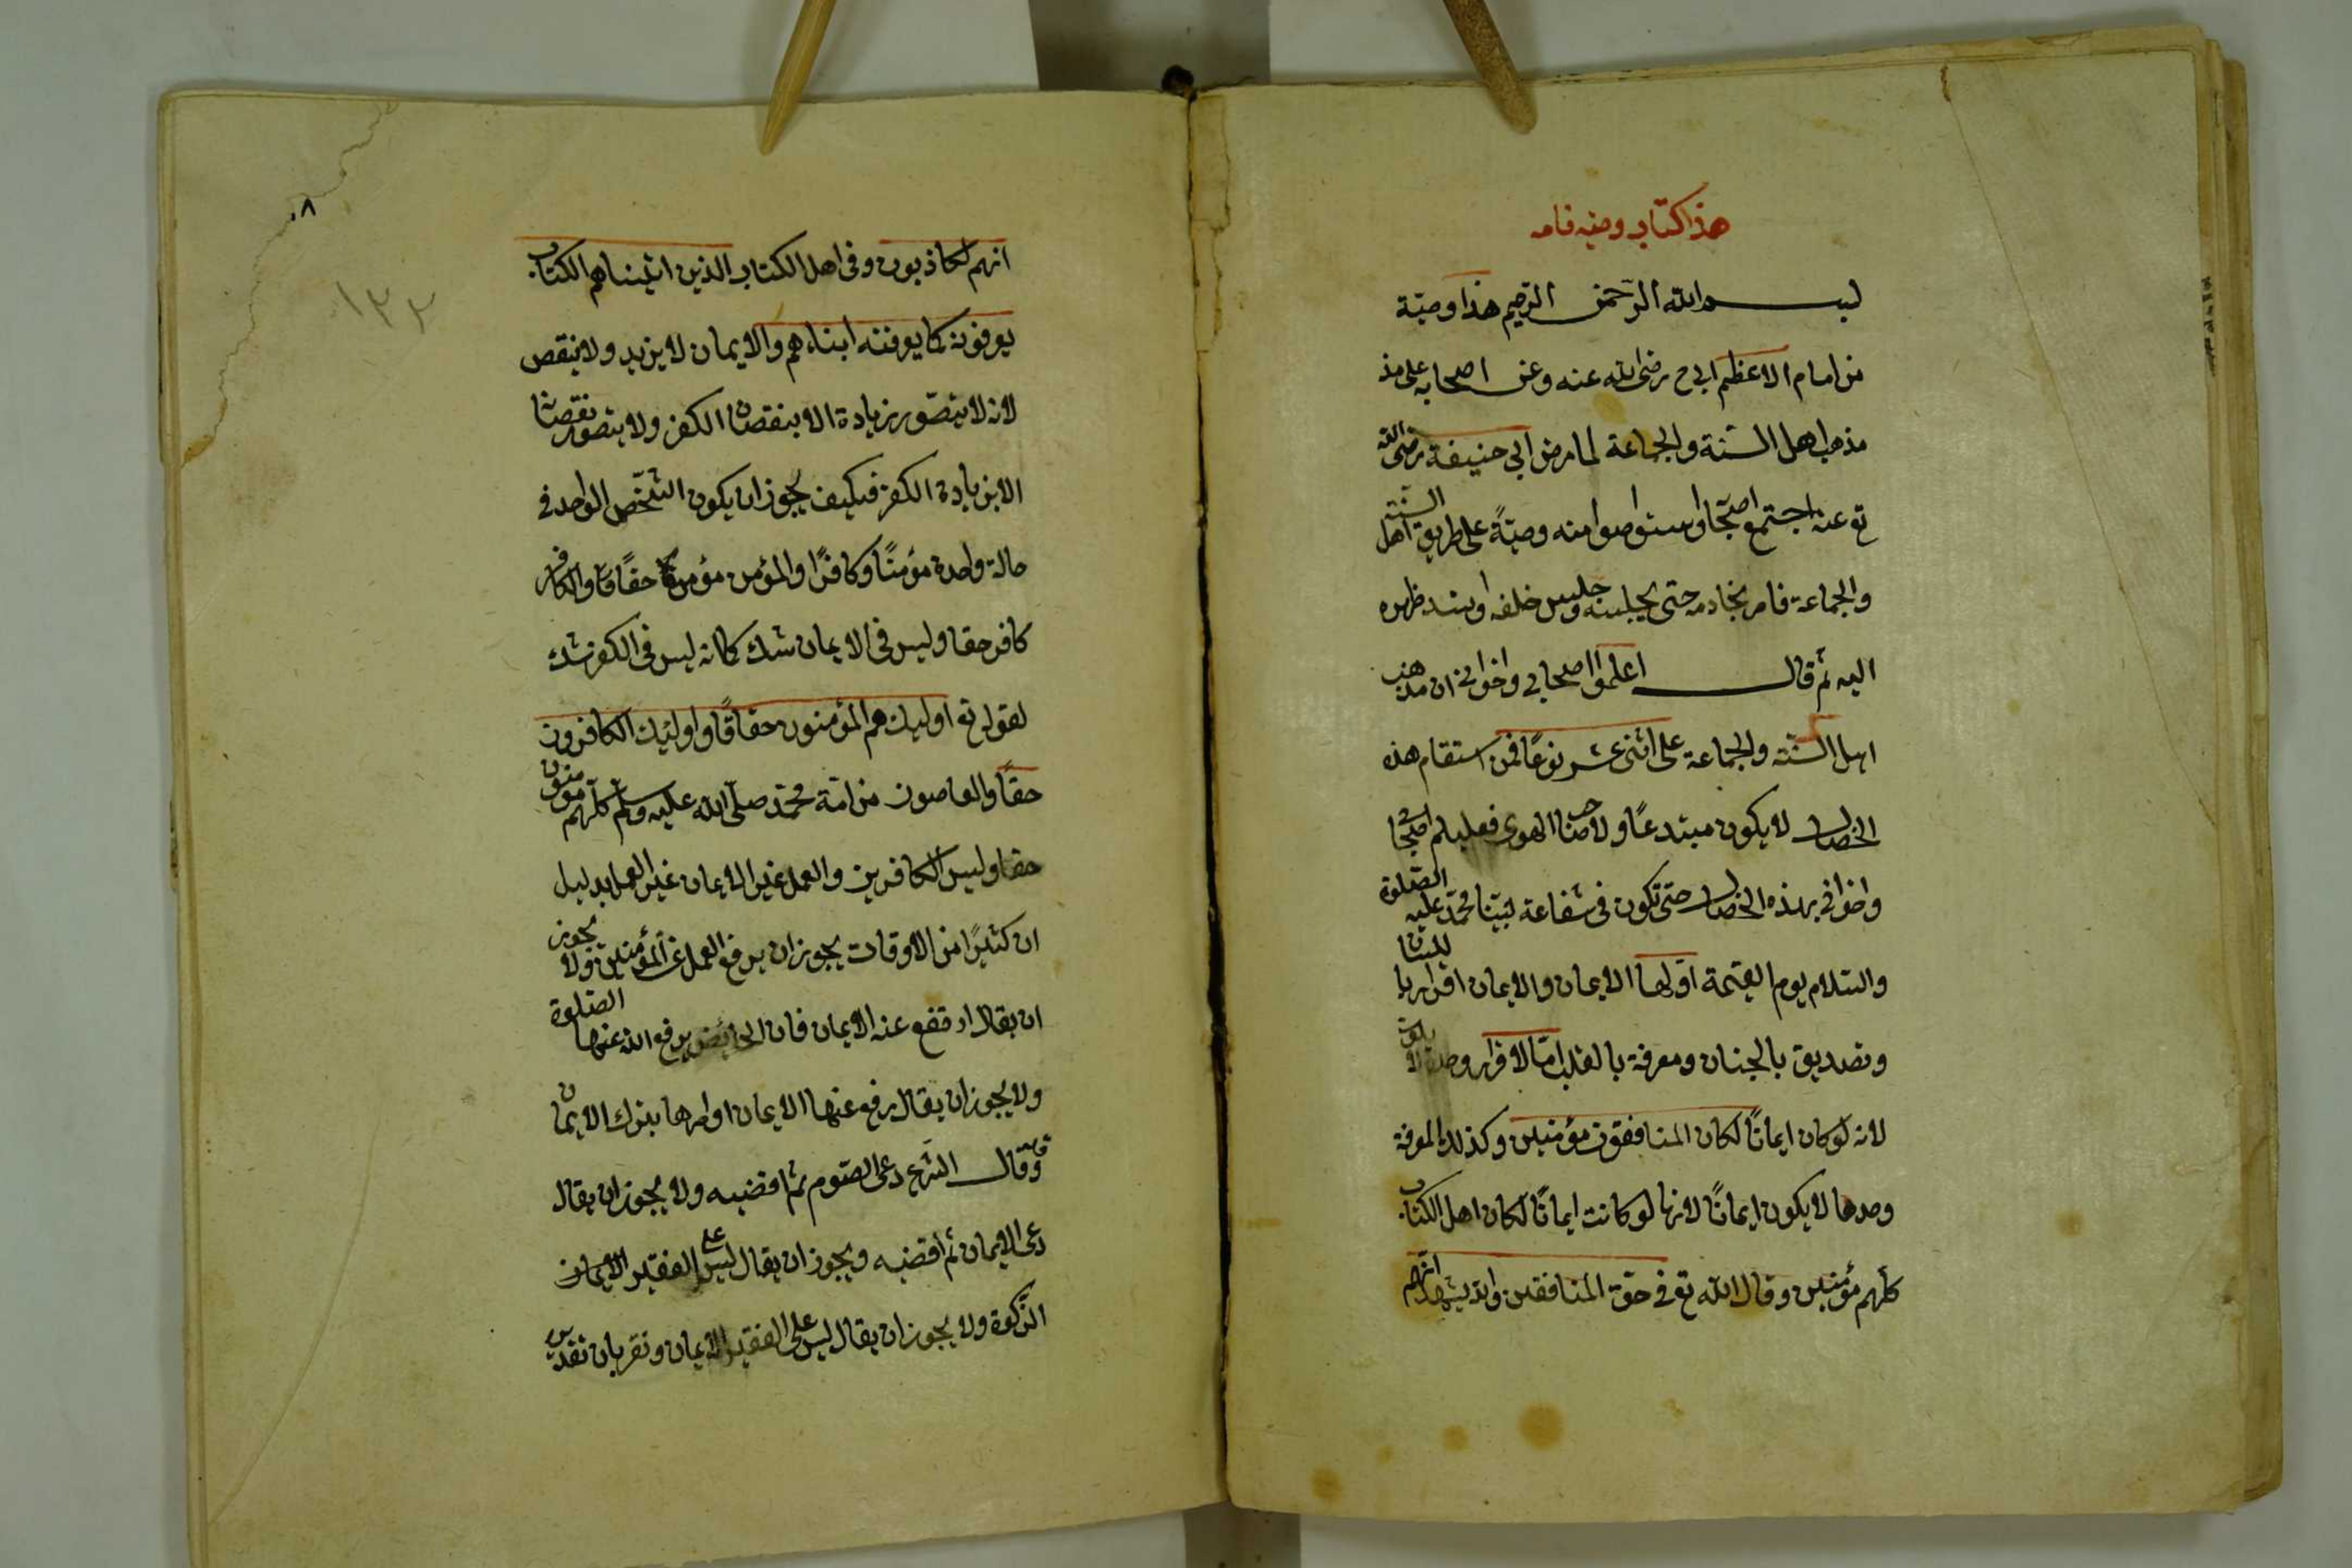 هذا كتاب وصيه نامه
بسم الله الرحمن الرحيم هذا وصيّة
من امام الاعظم ابي ح رضى الله عنه وعن اصحابه على مذ
مذهب اهل السنة والجماعة لما مرض ابي حنيفة رضى الله
تع عنه اجتمع اصحابه واستواصوا منه وصيّةً على طريق اهل السنّة
والجماعة فامر بخادمه حتى يجلسه وجلس خلفه اوسند ظهره
اليه ثم قال اعلموا اصحابي واخواني ان مذهب
اهل السنّة والجماعة على اثنى عشر نوعًا فمن استقام هذه
الخصال لا يكون مبتدعًا ولا صاحب الهوى فعليكم اصحابي
واخواني بهذه الخصال حتى تكون فى شفاعة نبيّنا محمّد عليه الصلوة
والسّلام يوم القيمة اولها الايمان والايمان اقرار باللسان
وتصديق بالجنان ومعرفة بالقلب امّا الاقرار وحده لا يكون
لانه لو كان ايمانًا لكان المنافقون مؤمنين وكذلك المعرفة
وحدها لا يكون ايمانًا لانها لو كانت ايمانًا لكان اهل الكتاب
كلهم مؤمنين وقال الله تع فى حق المنافقين والله يشهد انّهم
٨
١٣٢
انهم لكاذبون وفى اهل الكتاب الذين اتيناهم الكتاب
يعرفونه كما يعرفنه ابناءهم والايمان لا يزيد ولا ينقص
لانه لا يتصّور زيادة الا بنقصان الكفر ولا يتصور نقصانا
الا بزيادة الكفر فكيف يجوز ان يكون الشّخص الواحد فى
حالة واحدة مؤمنًا وكافرًا والمؤمن مؤمن حقاقا والكافر
كافر حقا وليس فى الايمان شك كما انه ليس فى الكفر شك
لقوله تع اوليك هم المؤمنون حقاقًا واوليك الكافرون
حقًا والعاصون من امة محمّد صلّى الله عليه وسلّم كلّهم مؤمنون
حقا وليس الكافرين والعمل غير الايمان غير العمل بدليل
ان كثيرًا من الاوقات يجوز ان يرفع العمل عن المؤمنين ولا يجوز
ان يقال ارتفع عنه الايمان فان الحائض يرفع الله عنها الصّلوة
ولا يجوز ان يقال رفع عنها الايمان او امرها بترك الايمان
وقال الشرع دعى الصّوم ثم اقضيه ولا يجوز ان يقال
دعى الايمان ثم اقضيه ويجوز ان يقال ليس على الفقير الايمان
الزّكوة ولا يجوز ان يقال ليس على الفقير الايمان ونقر بان تقدير